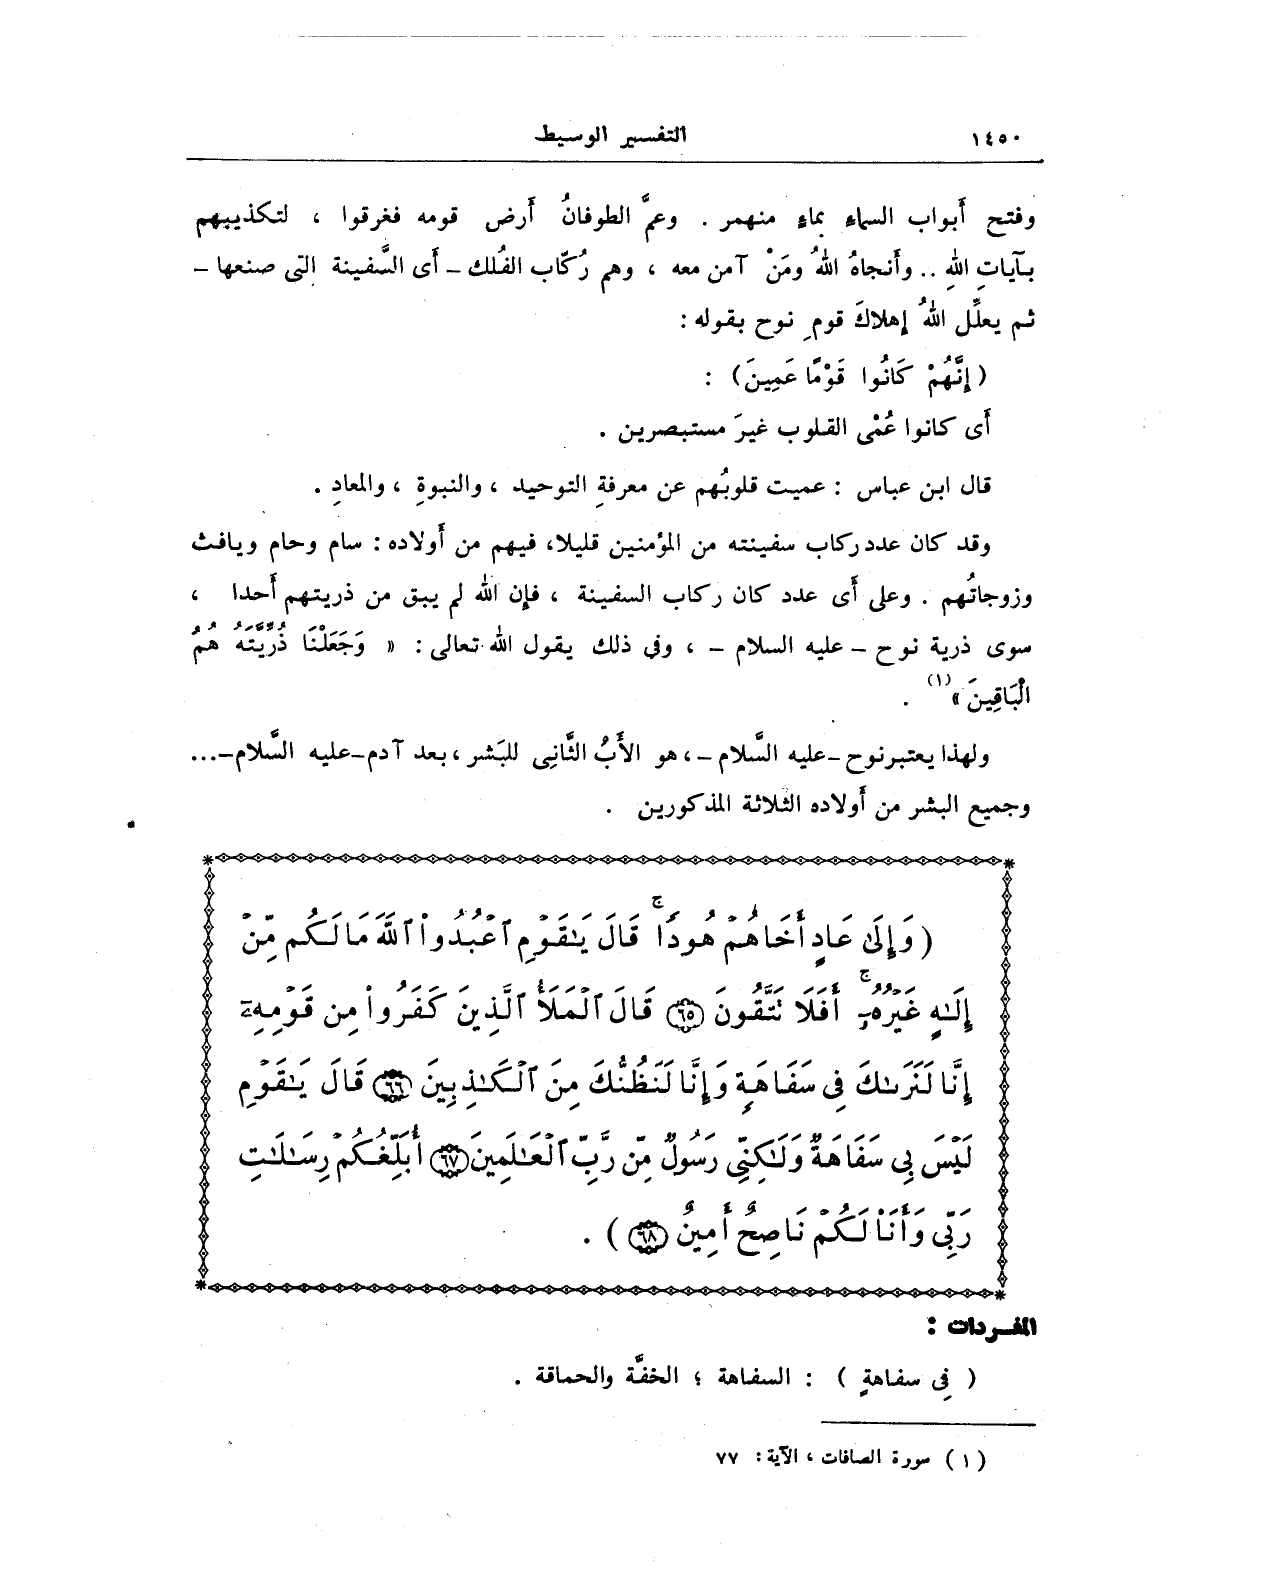 ١٤٥٠ التفسير الوسيط
وفتح أَبواب السماءِ بماءٍ منهمر . وعمَّ الطوفانُ أَرض قومه فغرقوا ، لتكذيبهم
بآياتِ اللهِ .. وأَنجاهُ اللهُ ومَنْ آمن معه ، وهم رُكّاب الفُلك – أَى السَّفينة التى صنعها –
ثم يعلِّل اللهُ إهلاكَ قومِ نوح بقوله :
( إِنَّهُمْ كَانُوا قَوْمًا عَمِينَ ) :
أَى كانوا عُمْى القلوب غيرَ مستبصرين .
قال ابن عباس : عميت قلوبُهم عن معرفةِ التوحيد ، والنبوةِ ، والمعادِ .
وقد كان عدد ركاب سفينته من المؤمنين قليلا، فيهم من أَولاده : سام وحام ويافث
وزوجاتُهم . وعلى أَى عدد كان ركاب السفينة ، فإِن الله لم يبق من ذريتهم أَحدا ،
سوى ذرية نوح – عليه السلام – ، وفى ذلك يقول الله تعالى : « وَجَعَلْنَا ذُرِّيَّتَهُ هُمُ
الْبَاقِينَ »(١) .
ولهذا يعتبر نوح – عليه السَّلام – ، هو الأَبُ الثَّانِى للبَشر ، بعد آدم – عليه السَّلام – ...
وجميع البشر من أَولاده الثلاثة المذكورين .
( وَإِلَىٰ عَادٍ أَخَاهُمْ هُودًا ۚ قَالَ يَـٰقَوْمِ ٱعْبُدُوا۟ ٱللَّهَ مَا لَكُم مِّنْ
إِلَـٰهٍ غَيْرُهُۥٓ ۚ أَفَلَا تَتَّقُونَ ٦٥ قَالَ ٱلْمَلَأُ ٱلَّذِينَ كَفَرُوا۟ مِن قَوْمِهِۦٓ
إِنَّا لَنَرَىٰكَ فِى سَفَاهَةٍ وَإِنَّا لَنَظُنُّكَ مِنَ ٱلْكَـٰذِبِينَ ٦٦ قَالَ يَـٰقَوْمِ
لَيْسَ بِى سَفَاهَةٌ وَلَـٰكِنِّى رَسُولٌ مِّن رَّبِّ ٱلْعَـٰلَمِينَ ٦٧ أُبَلِّغُكُمْ رِسَـٰلَـٰتِ
رَبِّى وَأَنَا۠ لَكُمْ نَاصِحٌ أَمِينٌ ٦٨ ) .
المفردات :
( فِى سفاهةٍ ) : السفاهة ؛ الخفَّة والحماقة .
( ١ ) سورة الصافات ، الآية : ٧٧